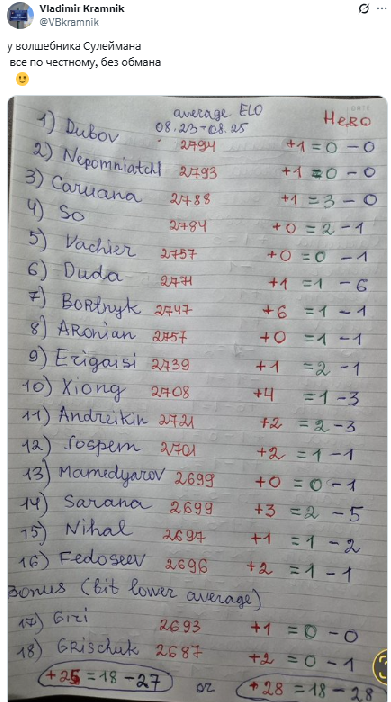 Vladimir Kramnik
@VBkramnik
у волшебника Сулеймана
все по честному, без обмана
average ELO
08.23-08.25
HeRO
1) Dubov 2794 +1=0-0
2) Nepomniatchi 2793 +1=0-0
3) Caruana 2788 +1=3-0
4) So 2784 +0=2-1
5) Vachier 2757 +0=0-1
6) Duda 2771 +1=1-6
7) Bortnyk 2747 +6=1-1
8) ARonian 2757 +0=1-1
9) Erigaisi 2739 +1=2-1
10) Xiong 2708 +4=1-3
11) Andreikn 2721 +2=2-3
12) Jospem 2701 +2=1-1
13) Mamedyarov 2699 +0=0-1
14) Sarana 2699 +3=2-5
15) Nihal 2697 +1=1-2
16) Fedoseev 2696 +2=1-1
Bonus (bit lower average)
17) Giri 2693 +1=0-0
18) GRischuk 2687 +2=0-1
+25=18-27 or +28=18-28